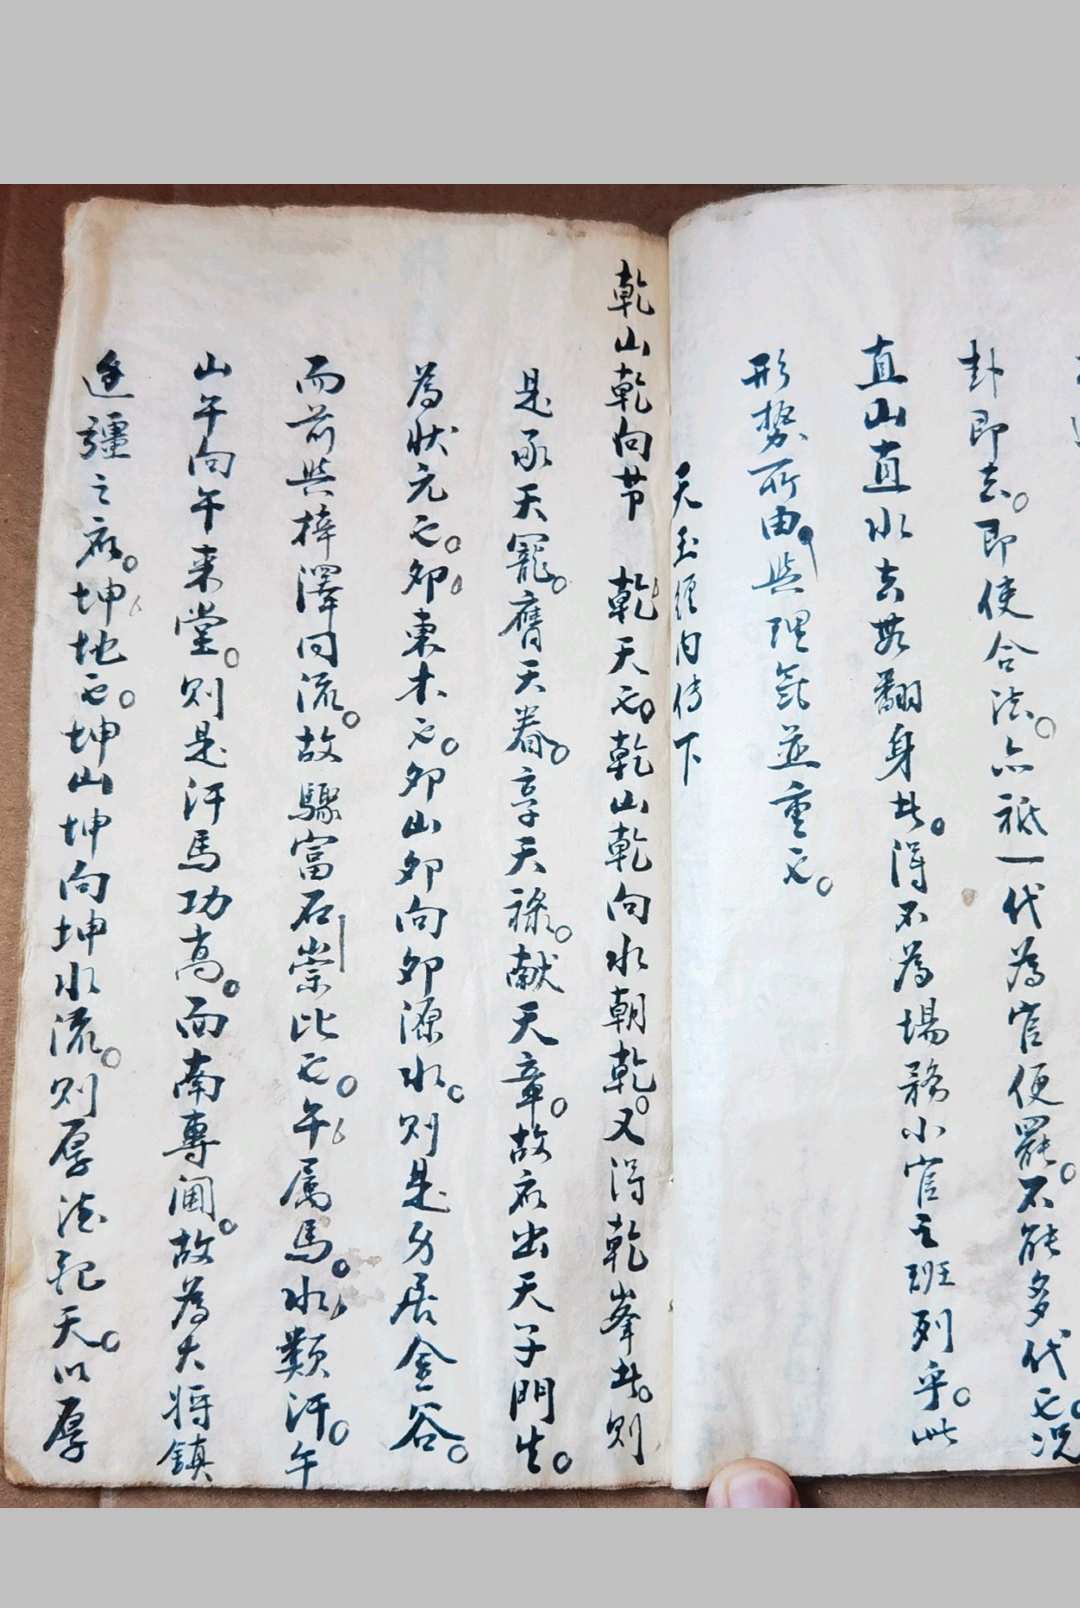 卦即去。即使合法。亦祗一代為官便罷。不能多代也。況
直山直水去無翻身者。得不為場務小官之班列乎。此
形勢所由。與理氣並重也。
天玉經內傳下
乾山乾向节 乾天也。乾山乾向水朝乾。又得乾峯者。則
是承天寵。膺天眷。享天祿。献天章。故府出天子門生。
為狀元也。卯。東木也。卯山卯向卯源水。則是身居金谷。
而前與梓澤同流。故驟富石崇比也。午。属馬。水類汗。午
山午向午来堂。則是汗馬功高。而南專阃。故為大將鎮
边疆之府。坤。地也。坤山坤向坤水流。則厚德配天。以厚